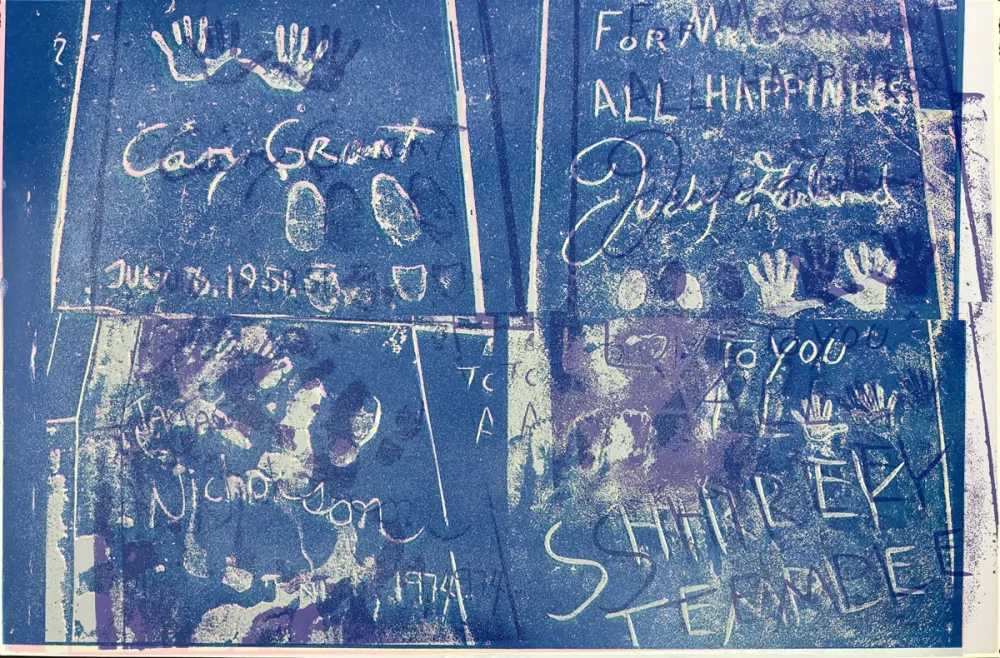 Cary Grant
JULY 16, 1951.
FOR Mr. Grauman
ALL HAPPINESS
Judy Garland
Nicholson
1974
TO
A
TO YOU
ALL
SHIRLEY
TEMPLE